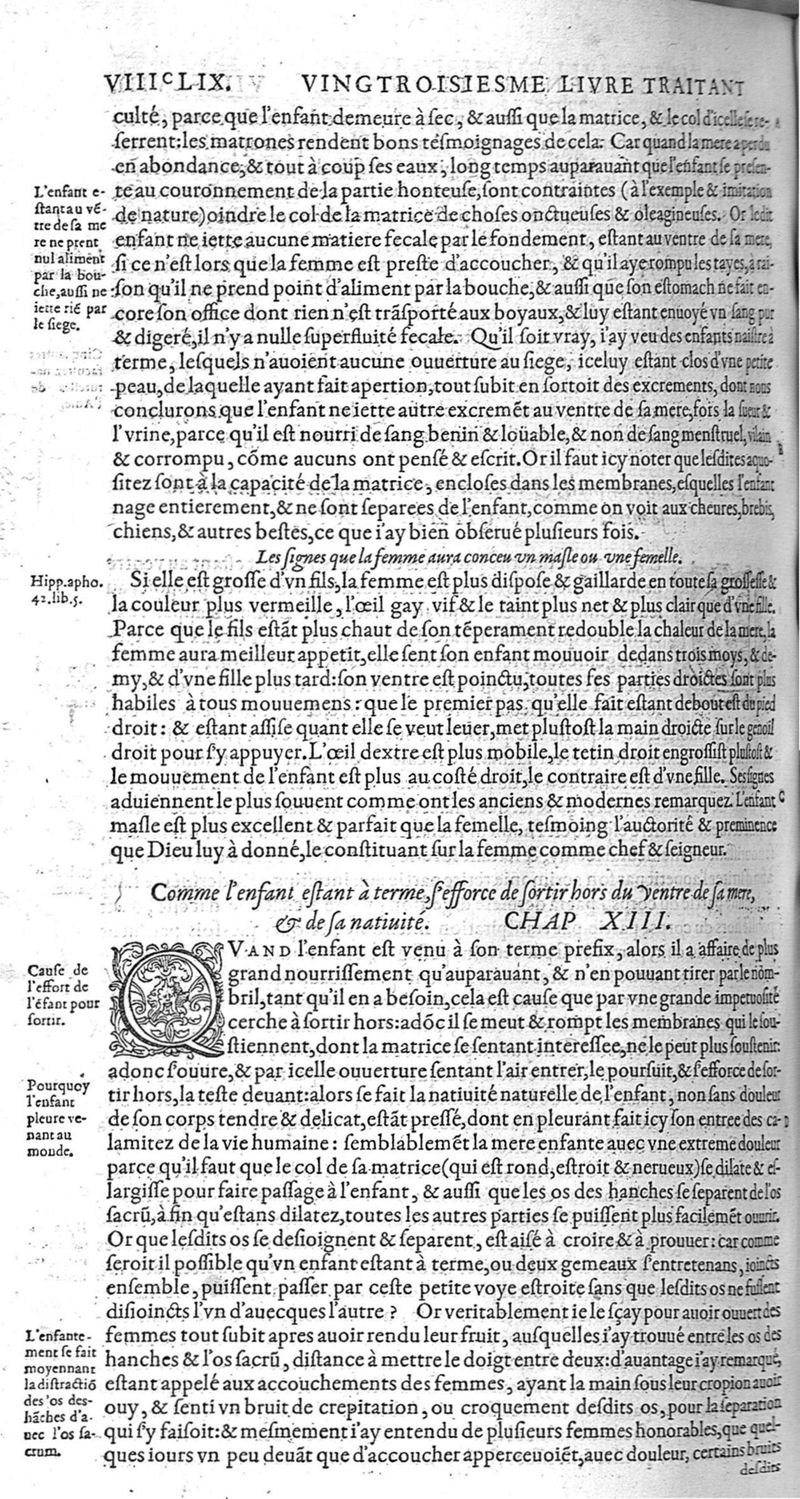 VIIIᶜLIX. VINGTROISIESME LIVRE TRAITANT
culté, parce que l'enfant demeure à sec, & auſſi que la matrice, & le col d'icelle ſe re-
ſerrent: les matrones rendent bons teſmoignages de cela: Car quand la mere a perdu
en abondance, & tout à coup ſes eaux, long temps auparauãt que l'enfant ſe preſen-
te au couronnement de la partie honteuſe, ſont contraintes (à l'exemple & imitation
de nature) oindre le col de la matrice de choſes onctueuſes & oleagineuſes. Or ledit
enfant ne iette aucune matiere fecale par le fondement, eſtant au ventre de ſa mere,
ſi ce n'eſt lors que la femme eſt preſte d'accoucher, & qu'il aye rompu les tayes, à rai-
ſon qu'il ne prend point d'aliment par la bouche, & auſſi que ſon eſtomach ne fait en-
core ſon office dont rien n'eſt trãſporté aux boyaux, & luy eſtant enuoyé vn ſang pur
& digeré, il n'y a nulle ſuperfluité fecale. Qu'il ſoit vray, i'ay veu des enfants naiſtre à
terme, leſquels n'auoient aucune ouuerture au ſiege, iceluy eſtant clos d'vne petite
peau, de laquelle ayant fait apertion, tout ſubit en ſortoit des excrements, dont nous
conclurons que l'enfant ne iette autre excremẽt au ventre de ſa mere, fors la ſueur &
l'vrine, parce qu'il eſt nourri de ſang benin & loüable, & non de ſang menſtruel, vilain
& corrompu, cõme aucuns ont penſé & eſcrit. Or il faut icy noter que leſdites aquo-
ſitez ſont à la capacité de la matrice, encloſes dans les membranes, eſquelles l'enfant
nage entierement, & ne ſont ſeparees de l'enfant, comme on voit aux cheures, brebis,
chiens, & autres beſtes, ce que i'ay bien obſerué pluſieurs fois.
L'enfant e-
ſtant au vẽ-
tre de ſa me
re ne prent
nul aliment
par la bou-
che, auſſi ne
iette riẽ par
le ſiege.
Les ſignes que la femme aura conceu vn maſle ou vne femelle.
Hipp. apho.
42. lib. 5.
Si elle eſt groſſe d'vn fils, la femme eſt plus diſpoſe & gaillarde en toute ſa groſſeſſe &
la couleur plus vermeille, l'œil gay vif & le taint plus net & plus clair que d'vne fille.
Parce que le fils eſtãt plus chaut de ſon tẽperament redouble la chaleur de la mere, la
femme aura meilleur appetit, elle ſent ſon enfant mouuoir dedans trois moys, & de-
my, & d'vne fille plus tard: ſon ventre eſt poinctu, toutes ſes parties droictes ſont plus
habiles à tous mouuemens: que le premier pas qu'elle fait eſtant debout eſt du pied
droit: & eſtant aſſiſe quant elle ſe veut leuer, met pluſtoſt la main droicte ſur le genoil
droit pour ſ'y appuyer. L'œil dextre eſt plus mobile, le tetin droit engroſſiſt pluſtoſt &
le mouuement de l'enfant eſt plus au coſté droit, le contraire eſt d'vne fille. Ses ſignes
aduiennent le plus ſouuent comme ont les anciens & modernes remarquez. L'enfant
maſle eſt plus excellent & parfait que la femelle, teſmoing l'auctorité & preminence
que Dieu luy à donné, le conſtituant ſur la femme comme chef & ſeigneur.
Comme l'enfant eſtant à terme, ſ'efforce de ſortir hors du ventre de ſa mere,
& de ſa natiuité. CHAP XIII.
QVAND l'enfant eſt venu à ſon terme prefix, alors il a affaire de plus
grand nourriſſement qu'auparauant, & n'en pouuant tirer par le nom-
bril, tant qu'il en a beſoin, cela eſt cauſe que par vne grande impetuoſité
cerche à ſortir hors: adõc il ſe meut & rompt les membranes qui le ſou-
ſtiennent, dont la matrice ſe ſentant intereſſee, ne le peut plus ſouſtenir:
adonc ſ'ouure, & par icelle ouuerture ſentant l'air entrer, le pourſuit, & ſ'efforce de ſor-
tir hors, la teſte deuant: alors ſe fait la natiuité naturelle de l'enfant, non ſans douleur
de ſon corps tendre & delicat, eſtãt preſſé, dont en pleurant fait icy ſon entree des ca-
lamitez de la vie humaine: ſemblablemẽt la mere enfante auec vne extreme douleur
parce qu'il faut que le col de ſa matrice (qui eſt rond, eſtroit & nerueux) ſe dilate & eſ-
largiſſe pour faire paſſage à l'enfant, & auſſi que les os des hanches ſe ſeparent de l'os
ſacrũ, à fin qu'eſtans dilatez, toutes les autres parties ſe puiſſent plus facilemẽt ouurir.
Or que leſdits os ſe deſioignent & ſeparent, eſt aiſé à croire & à prouuer: car comme
ſeroit il poſſible qu'vn enfant eſtant à terme, ou deux gemeaux ſ'entretenans, ioincts
enſemble, puiſſent paſſer par ceſte petite voye eſtroite ſans que leſdits os ne fuſſent
diſioincts l'vn d'auecques l'autre? Or veritablement ie le ſçay pour auoir ouuert des
femmes tout ſubit apres auoir rendu leur fruit, auſquelles i'ay trouué entre les os des
hanches & l'os ſacrũ, diſtance à mettre le doigt entre deux: d'auantage i'ay remarqué,
eſtant appelé aux accouchements des femmes, ayant la main ſous leur cropion auoir
ouy, & ſenti vn bruit de crepitation, ou croquement deſdits os, pour la ſeparation
qui ſ'y faiſoit: & meſmement i'ay entendu de pluſieurs femmes honorables, que quel-
ques iours vn peu deuãt que d'accoucher apperceuoiẽt, auec douleur, certains bruits
deſdits
Cauſe de
l'effort de
l'éfant pour
ſortir.
Pourquoy
l'enfant
pleure ve-
nant au
monde.
L'enfante-
ment ſe fait
moyennant
la diſtractiõ
des os des
hãches d'a-
uec l'os ſa-
crum.